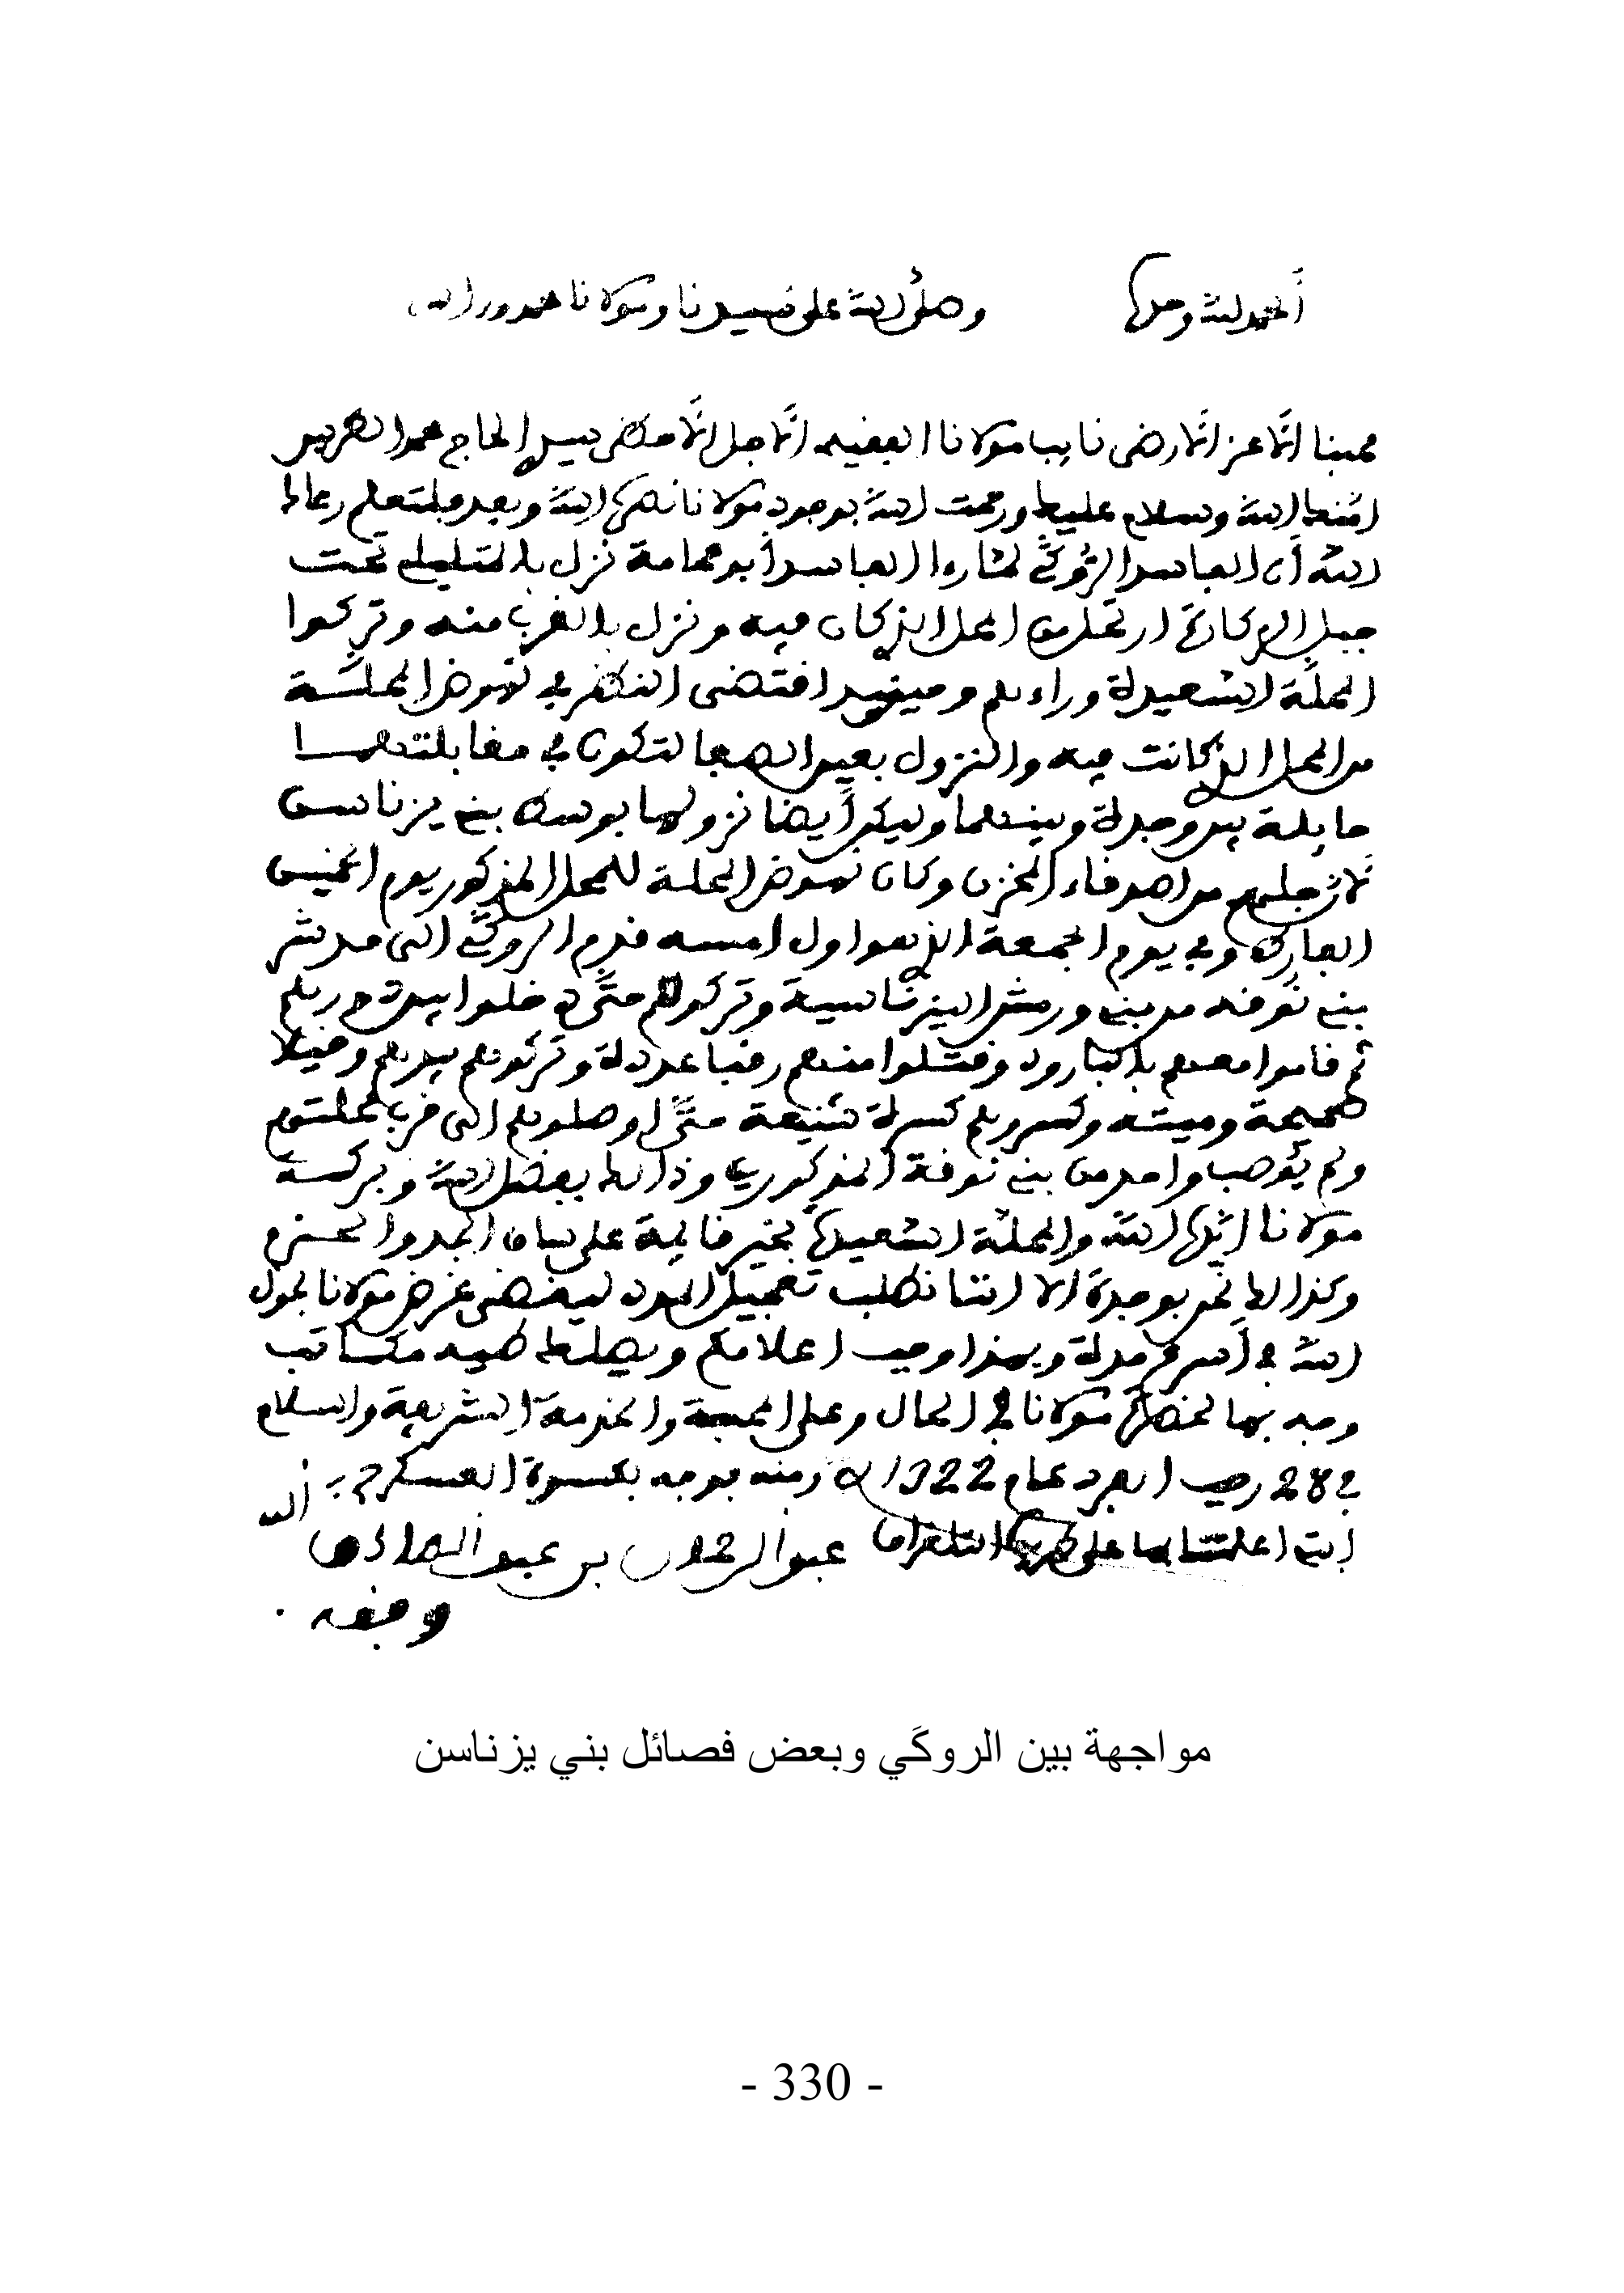 الحمد لله وحده وصلى الله على سيدنا ومولانا محمد وءاله
محبنا الأعز الأرضى نايب مولانا الفقيه الأجل الأحظى سيدي الحاج محمد
الله وسلام عليك ورحمت الله بوجود مولانا نصره الله وبعد فلتعلم رعاك
الله أن الفاسد الروكي أبو حمامة نزل تحت
جبل ارتحل من المحل الذي كان فيه ونزل بالقرب منه وتركوا
المحلة السعيدة وراءهم وحينئذ اقتضى النظر في نهوض المحلة
من المحل الذي كانت فيه والنزول بعين الصفا لتكون في مقابلتهما
حايلة بين وجدة وبينهما وليكن أيضا نزولها بوسط بني يزناسن
من اصدقاء المخزن وكان نهوض المحلة للمحل المذكور يوم الخميس
الفارط وفي يوم الجمعة الذي هو اول امسه قدم الروكي الى مدشر
بني نوفه من بني وريمش اليزناسية وتركوهم حتى دخلوا بين دورهم
ثم قاموا معهم بالبارود وقتلوا منهم رقبا عديدة وتركوهم بيدهم وخيلا
صحيحة وميته وكسروهم كسرة شنيعة حتى اوصلوهم الى قرب محلتهم
ولم يوصب واحد من بني نوفة المذكورين وذلك بفضل الله وبركة
مولانا ايده الله والمحلة السعيدة بخير قايمة على ساق الجد والحزم
وكذلك نحن بوجدة الا اننا نطلب تعجيل المدد ليقضى غرض مولانا بحول
الله في أسرع مدة وبهذا وجب اعلامكم ويصلك طيه مكاتب
وجه بها لحضرة مولانا في الحال وعلى المحبة والخدمة الشريفة والسلام
في 28 رجب الفرد عام 1322 ومنه يوجه بكسوة العسكر
التي اعلمتنا بها على التلغراف عبد الرحمان بن عبد الصادق الله
وفقه
مواجهة بين الروكَي وبعض فصائل بني يزناسن
- 330 -